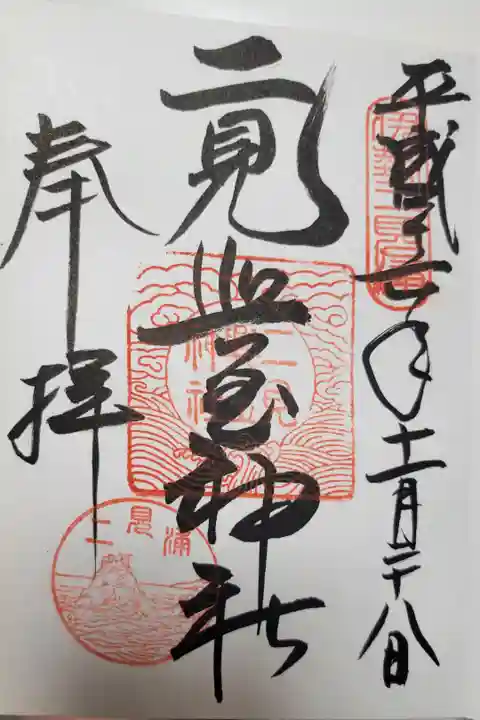 平成三十年十一月二十八日
伊勢二見浦
二見興玉神社
二見興玉神社
奉拝
二見浦